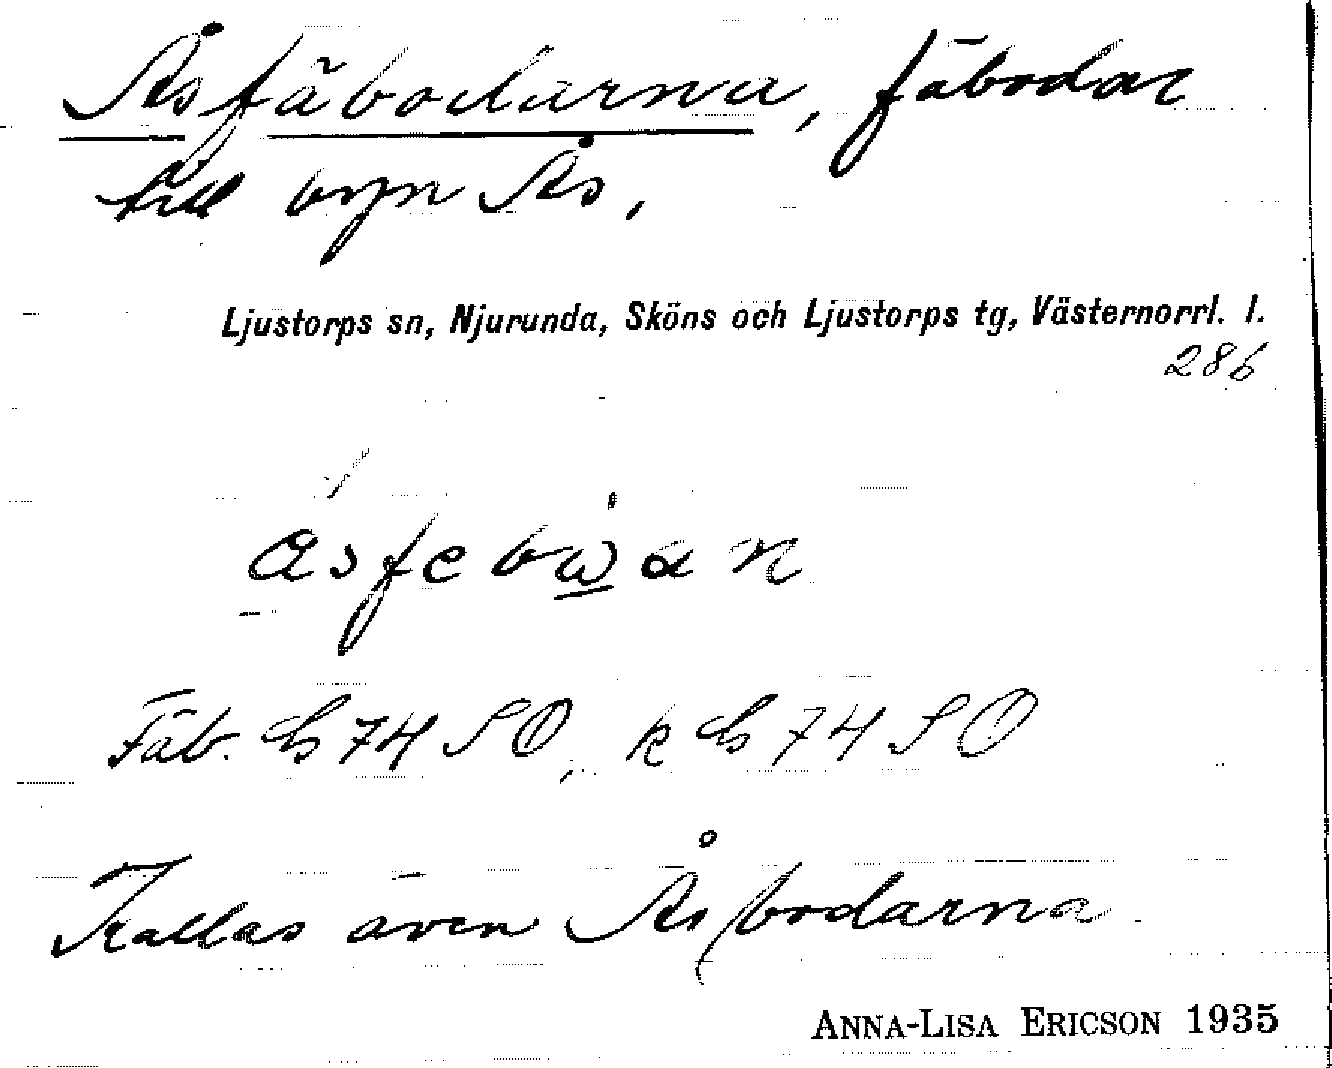 Åsfäbodarna, fäbodar
till byn Ås,
Ljustorps sn, Njurunda, Sköns och Ljustorps tg, Västernorrl. l.
286
Fäb. h 74 SO, k h 74 SO
Kallas även Åsbodarna
ANNA-LISA ERICSON 1935